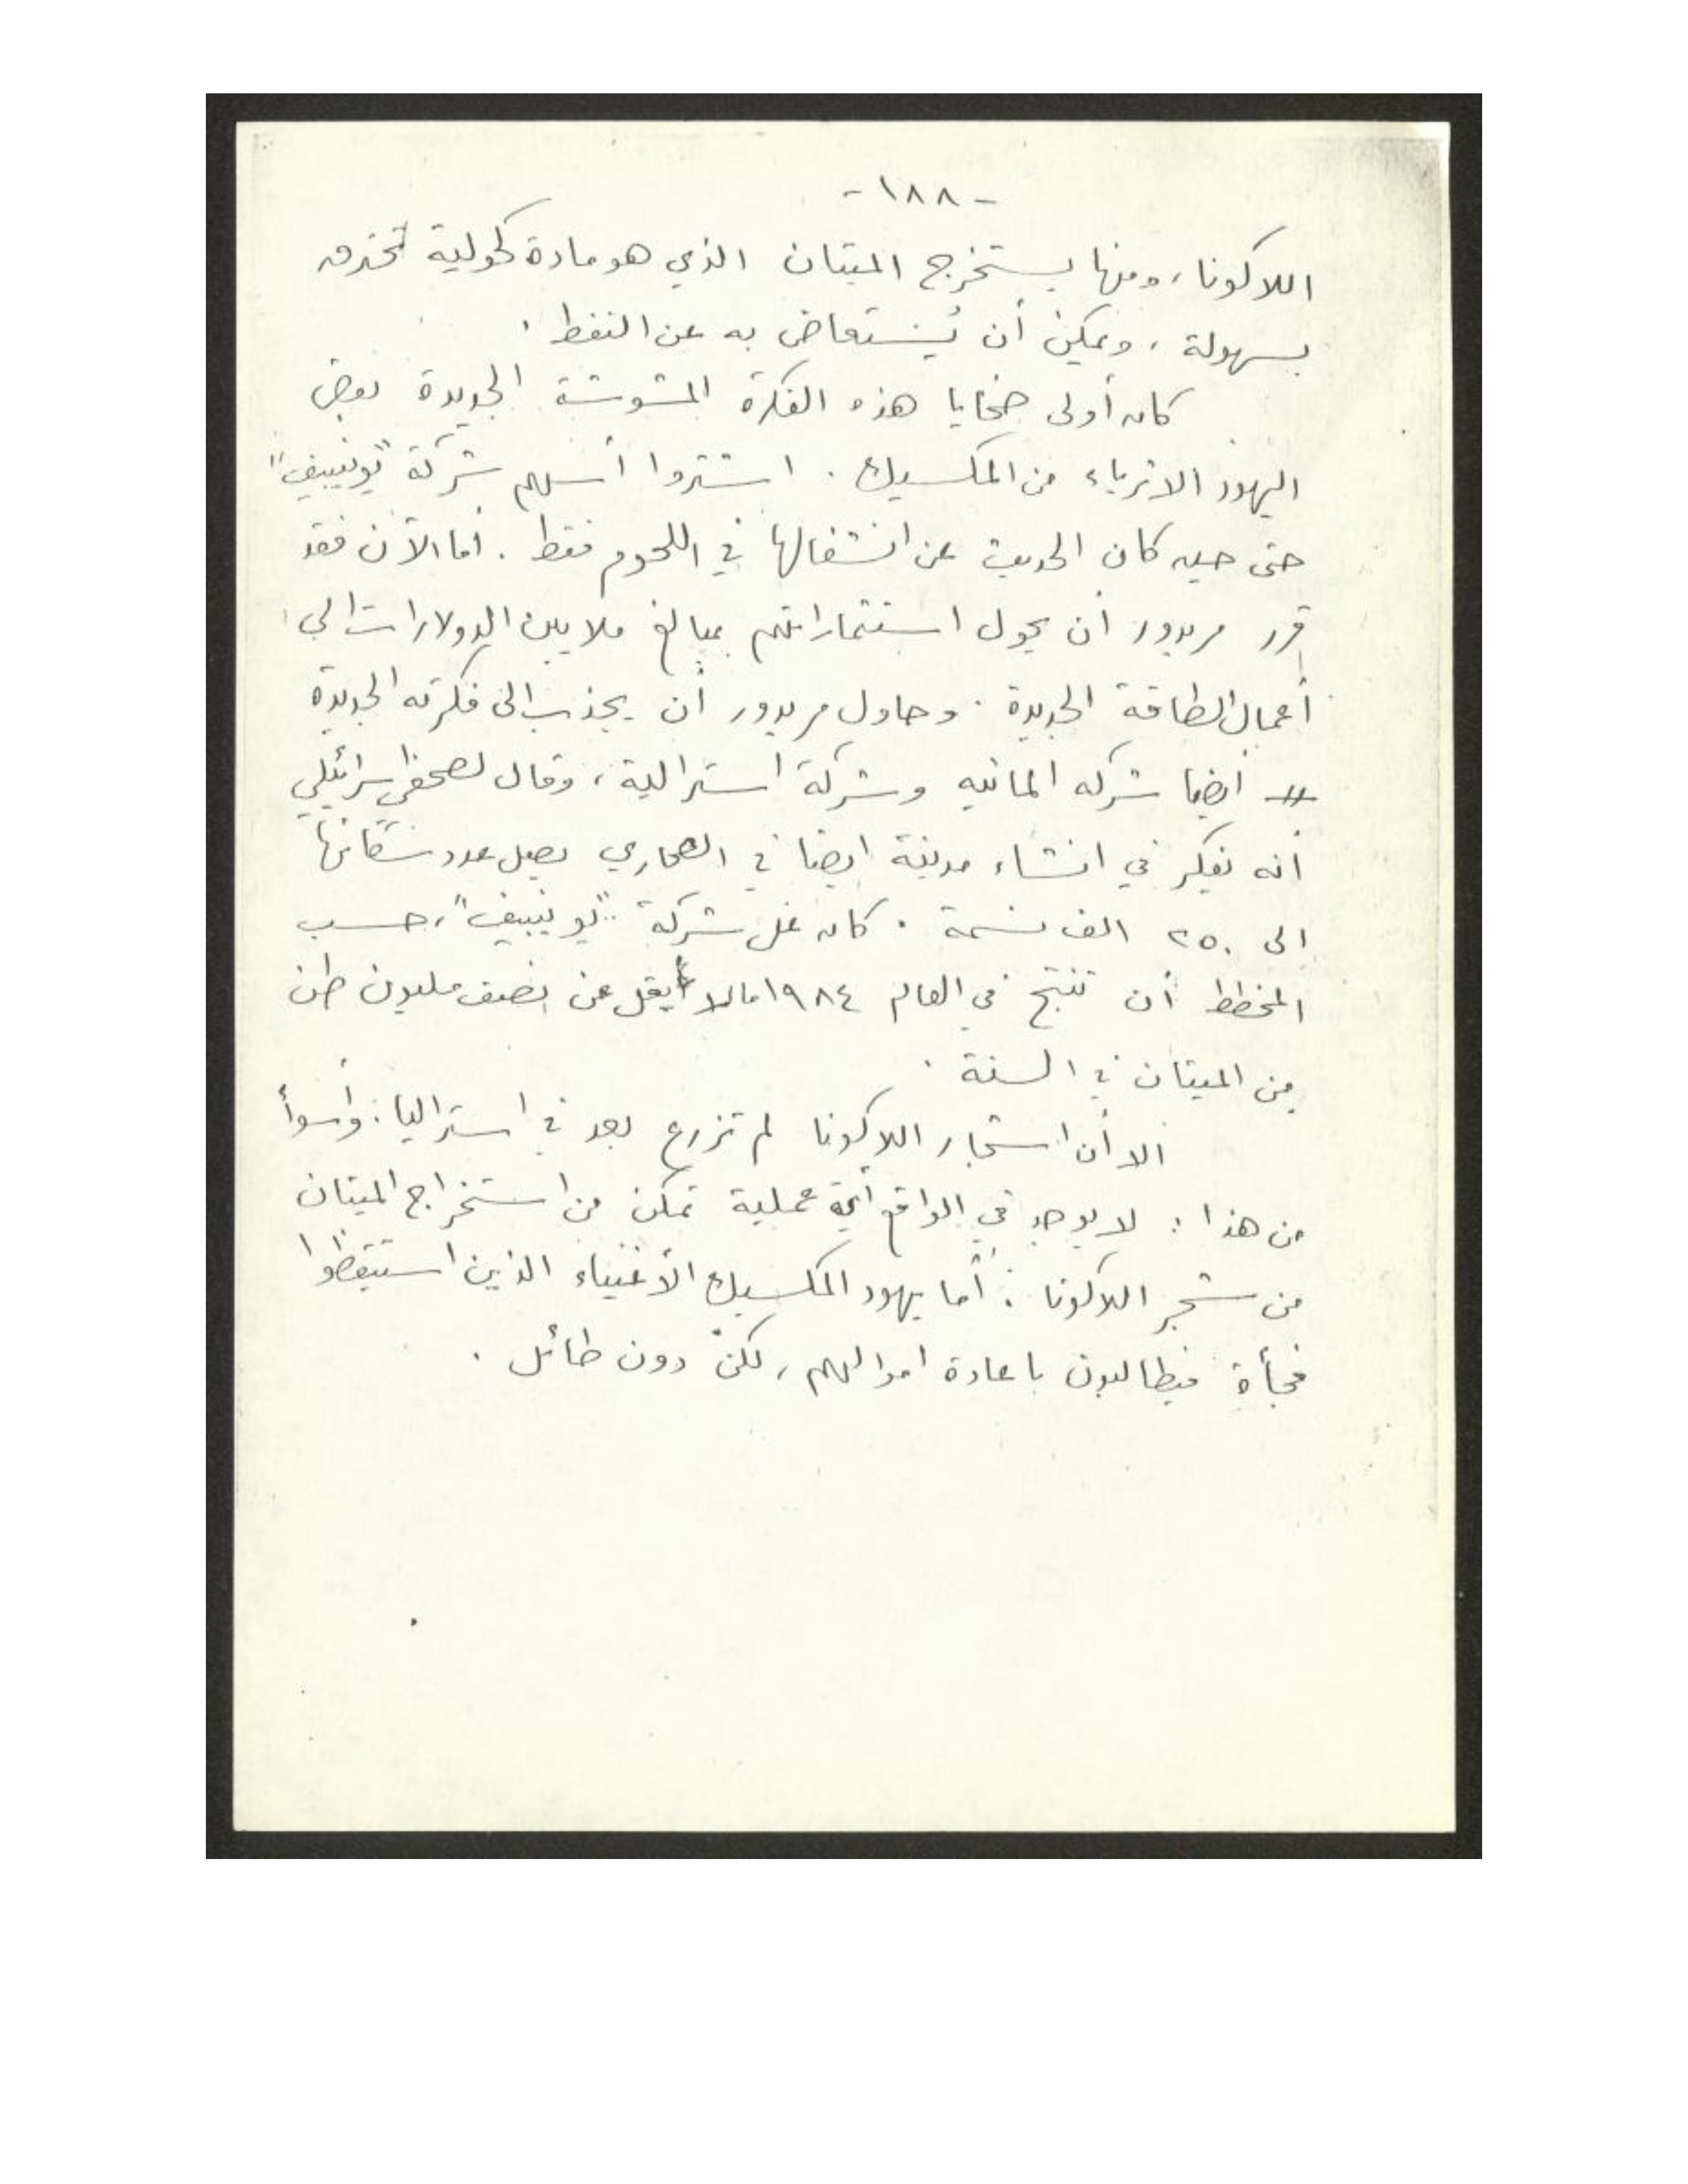 -١٨٨-
اللاكونا، ومنها يستخرج الميتان الذي هو مادة كحولية تحترق
بسهولة، ويمكن أن يُستعاض به عن النفط.
كان أولى ضحايا هذه الفكرة المشوشة الجديدة بعض
اليهود الاثرياء من المكسيك. اشتروا أسهم شركة "يونيبيف"
حتى حين كان الحديث عن انشغالها في اللحوم فقط. أما الآن فقد
قرر مريدور أن يحول استثماراتهم بمبالغ ملايين الدولارات الى
أعمال الطاقة الجديدة. وحاول مريدور أن يجذب الى فكرته الجديدة
أيضا شركه المانيه وشركة استرالية، وقال لصحفي اسرائيلي
أنه يفكر في انشاء مدينة ايضا في الصحاري يصل عدد سكانها
الى ٢٥٠ الف نسمة. كان على شركة "يونيبيف"، حسب
المخطط أن تنتج في العام ١٩٨٤ ما لا يقل عن نصف مليون طن
من الميتان في السنة.
الا أن اشجار اللاكونا لم تزرع بعد في استراليا: وأسوأ
من هذا: لا يوجد في الواقع أية عملية تمكن من استخراج الميتان
من شجر اللاكونا: أما يهود المكسيك الأغنياء الذين استيقظوا
فجأة فيطالبون باعادة اموالهم، لكن دون طائل.